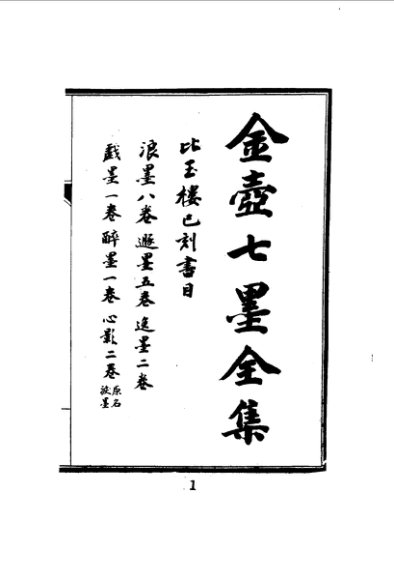 金壺七墨全集
比玉樓已刻書目
浪墨八卷遯墨五卷逸墨二卷
戲墨一卷醉墨一卷心影二卷原名淚墨
1